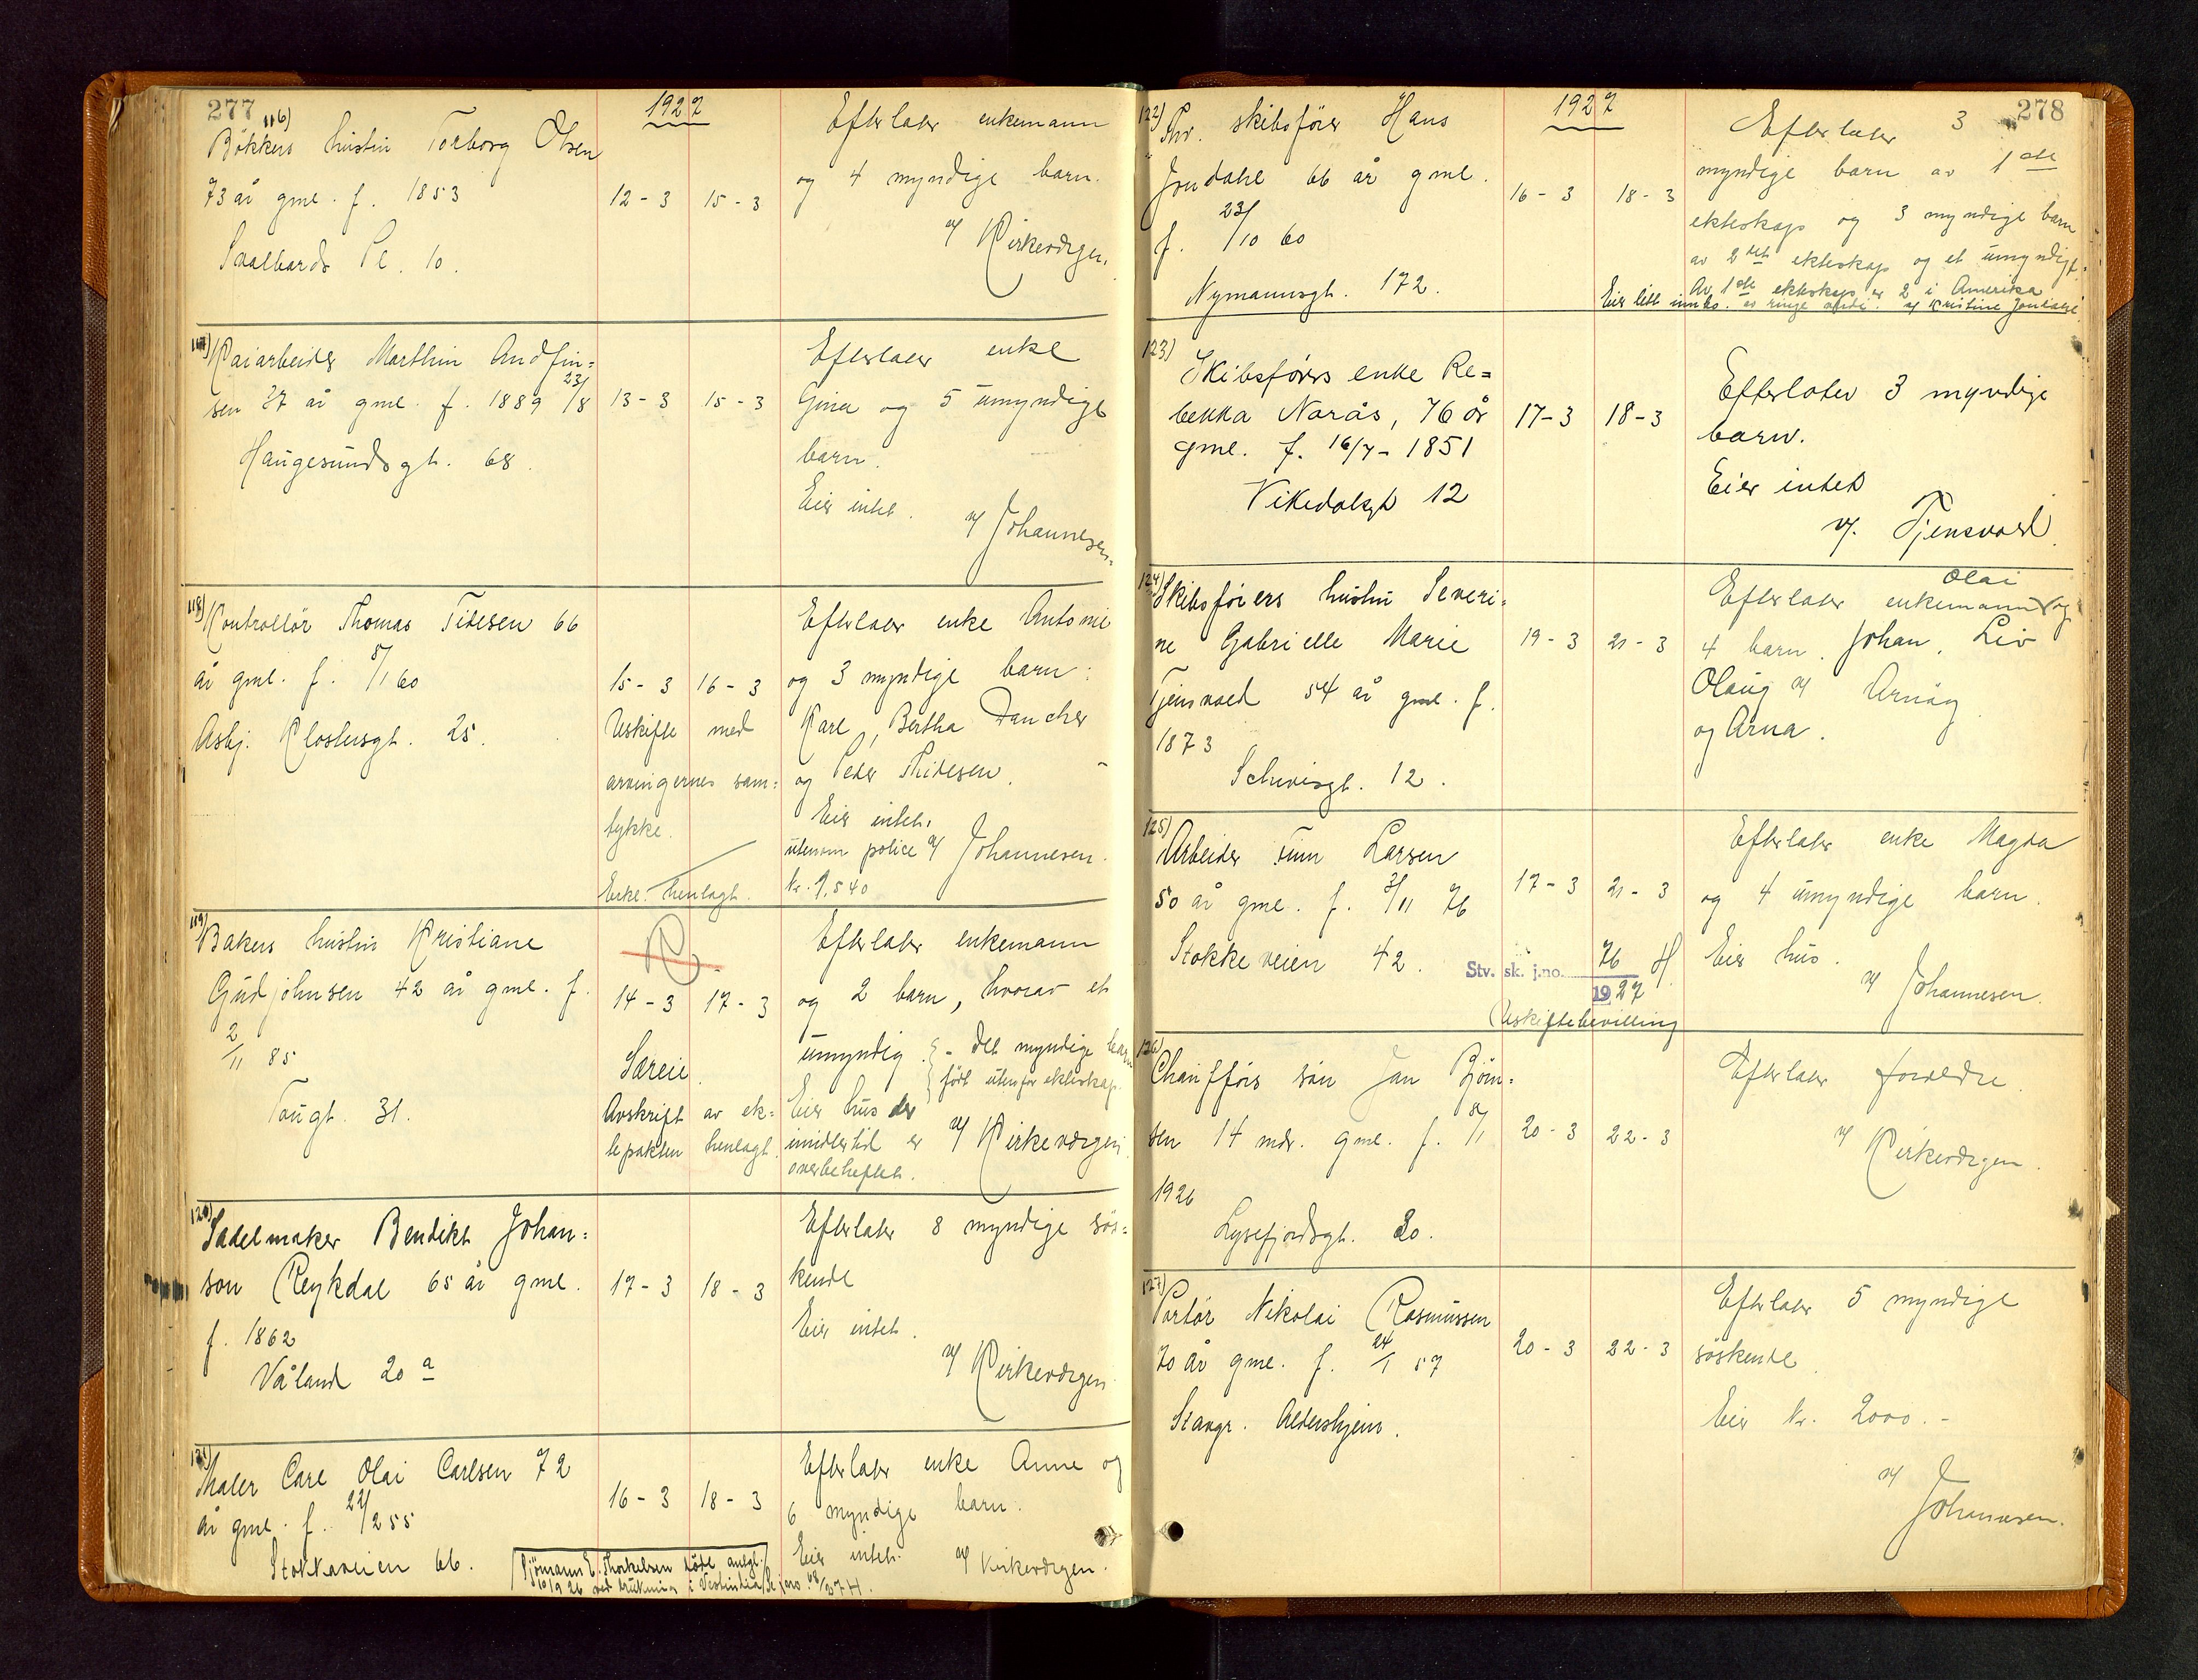 277
1927
116)
Bökkers hustru Torborg Olsen
73 år gml. f. 1853
Svalbards Pl. 10.
12 - 3
15 - 3
Efterlater enkemann
og 4 myndige barn.
v/ Kirkevergen.
117)
Kaiarbeider Marthin Andfin=
sen 37 år gml. f. 1889 23/8
Haugesundsgt. 68.
13 - 3
15 - 3
Efterlater enke
Gina og 5 umyndige
barn.
Eier intet.
v/ Johannesen.
118)
Kontrollör Thomas Tidesen 66
år gml. f. 8/1 60
Asbj. Klostersgt. 25.
15 - 3
16 - 3
Uskifte med
arvingernes sam=
tykke.
Erkl. henlagt.
Efterlater enke Antonie
og 3 myndige barn:
Karl, Bertha Dancker
og Peder Thidesen.
Eier intet.
utenom police v/ Johannesen.
kr. 1,540
119)
Bakers hustru Kristiane
Gudjohnsen 42 år gml. f.
2/11 85
Tougt. 31.
14 - 3
17 - 3
Særeie.
Avskrift av ek=
tepakten henlagt.
Efterlater enkemann
og 2 barn, hvorav et
umyndig. - Det myndige barn
født utenfor ekteskap.
Eier hus der
imidlertid er v/ Kirkevergen
overbeheftet.
120)
Sadelmaker Bendikt Johan=
son Reykdal 65 år gml.
f. 1862
Våland 20 a
17 - 3
18 - 3
Efterlater 8 myndige søs=
kende
Eier intet.
v/ Kirkevergen
121)
Maler Carl Olai Carlsen 72
år gml. f. 22/2 55
Stokkaveien 66.
16 - 3
18 - 3
Efterlater enke Anne og
6 myndige barn.
Eier intet.
v/ Kirkevergen.
E. Thorkelsen
10/9 26 ved drukning i
278
1927
122)
Fhv. skibsfører Hans
Jondahl 66 år gml.
f. 23/10 60
Nymannsgt. 172.
16 - 3
18 - 3
Efterlater 3
myndige barn av 1ste
ekteskap og 3 myndige barn
av 2det ekteskap og et umyndigt.
Av 1ste ekteskap er 2 i Amerika
Eier litt innbo. av ringe verdi. v/ Kristine Jondahl.
123)
Skibsførers enke Re=
bekka Norås, 76 år
gml. f. 16/7 - 1851
Vikedalsgt 12
17 - 3
18 - 3
Efterlater 3 myndige
barn.
Eier intet
v/. Tjensvold.
124)
Skibsførers hustru Severi=
ne Gabrielle Marie
Tjensvold 54 år gml. f.
1873
Schivesgt. 12.
19 - 3
21 - 3
Olai
Efterlater enkemann og
4 barn. Johan, Liv
Olaug v/ Arnøy
og Arna.
125)
Arbeider Tinn Larsen
50 år gml. f. 3/11 76
Stokkeveien 42.
17 - 3
21 - 3
Stv. sk. j.no. 76 H
1927
Uskiftebevilling
Efterlater enke Magda
og 4 umyndige barn.
Eier hus.
v/ Johannesen.
126)
Chaufførs søn Jan Björn=
sen 14 mdr. gml. f. 8/1
1926
Lysefjordsgt. 20.
20 - 3
22 - 3
Efterlater foreldre.
v/ Kirkevergen.
127)
Portör Nikolai Rasmussen
70 år gml. f. 24/1 57
Stavgr. Aldershjem.
20 - 3
22 - 3
Efterlater 5 myndige
søskende.
Eier kr. 2000.-
v/ Johannesen.